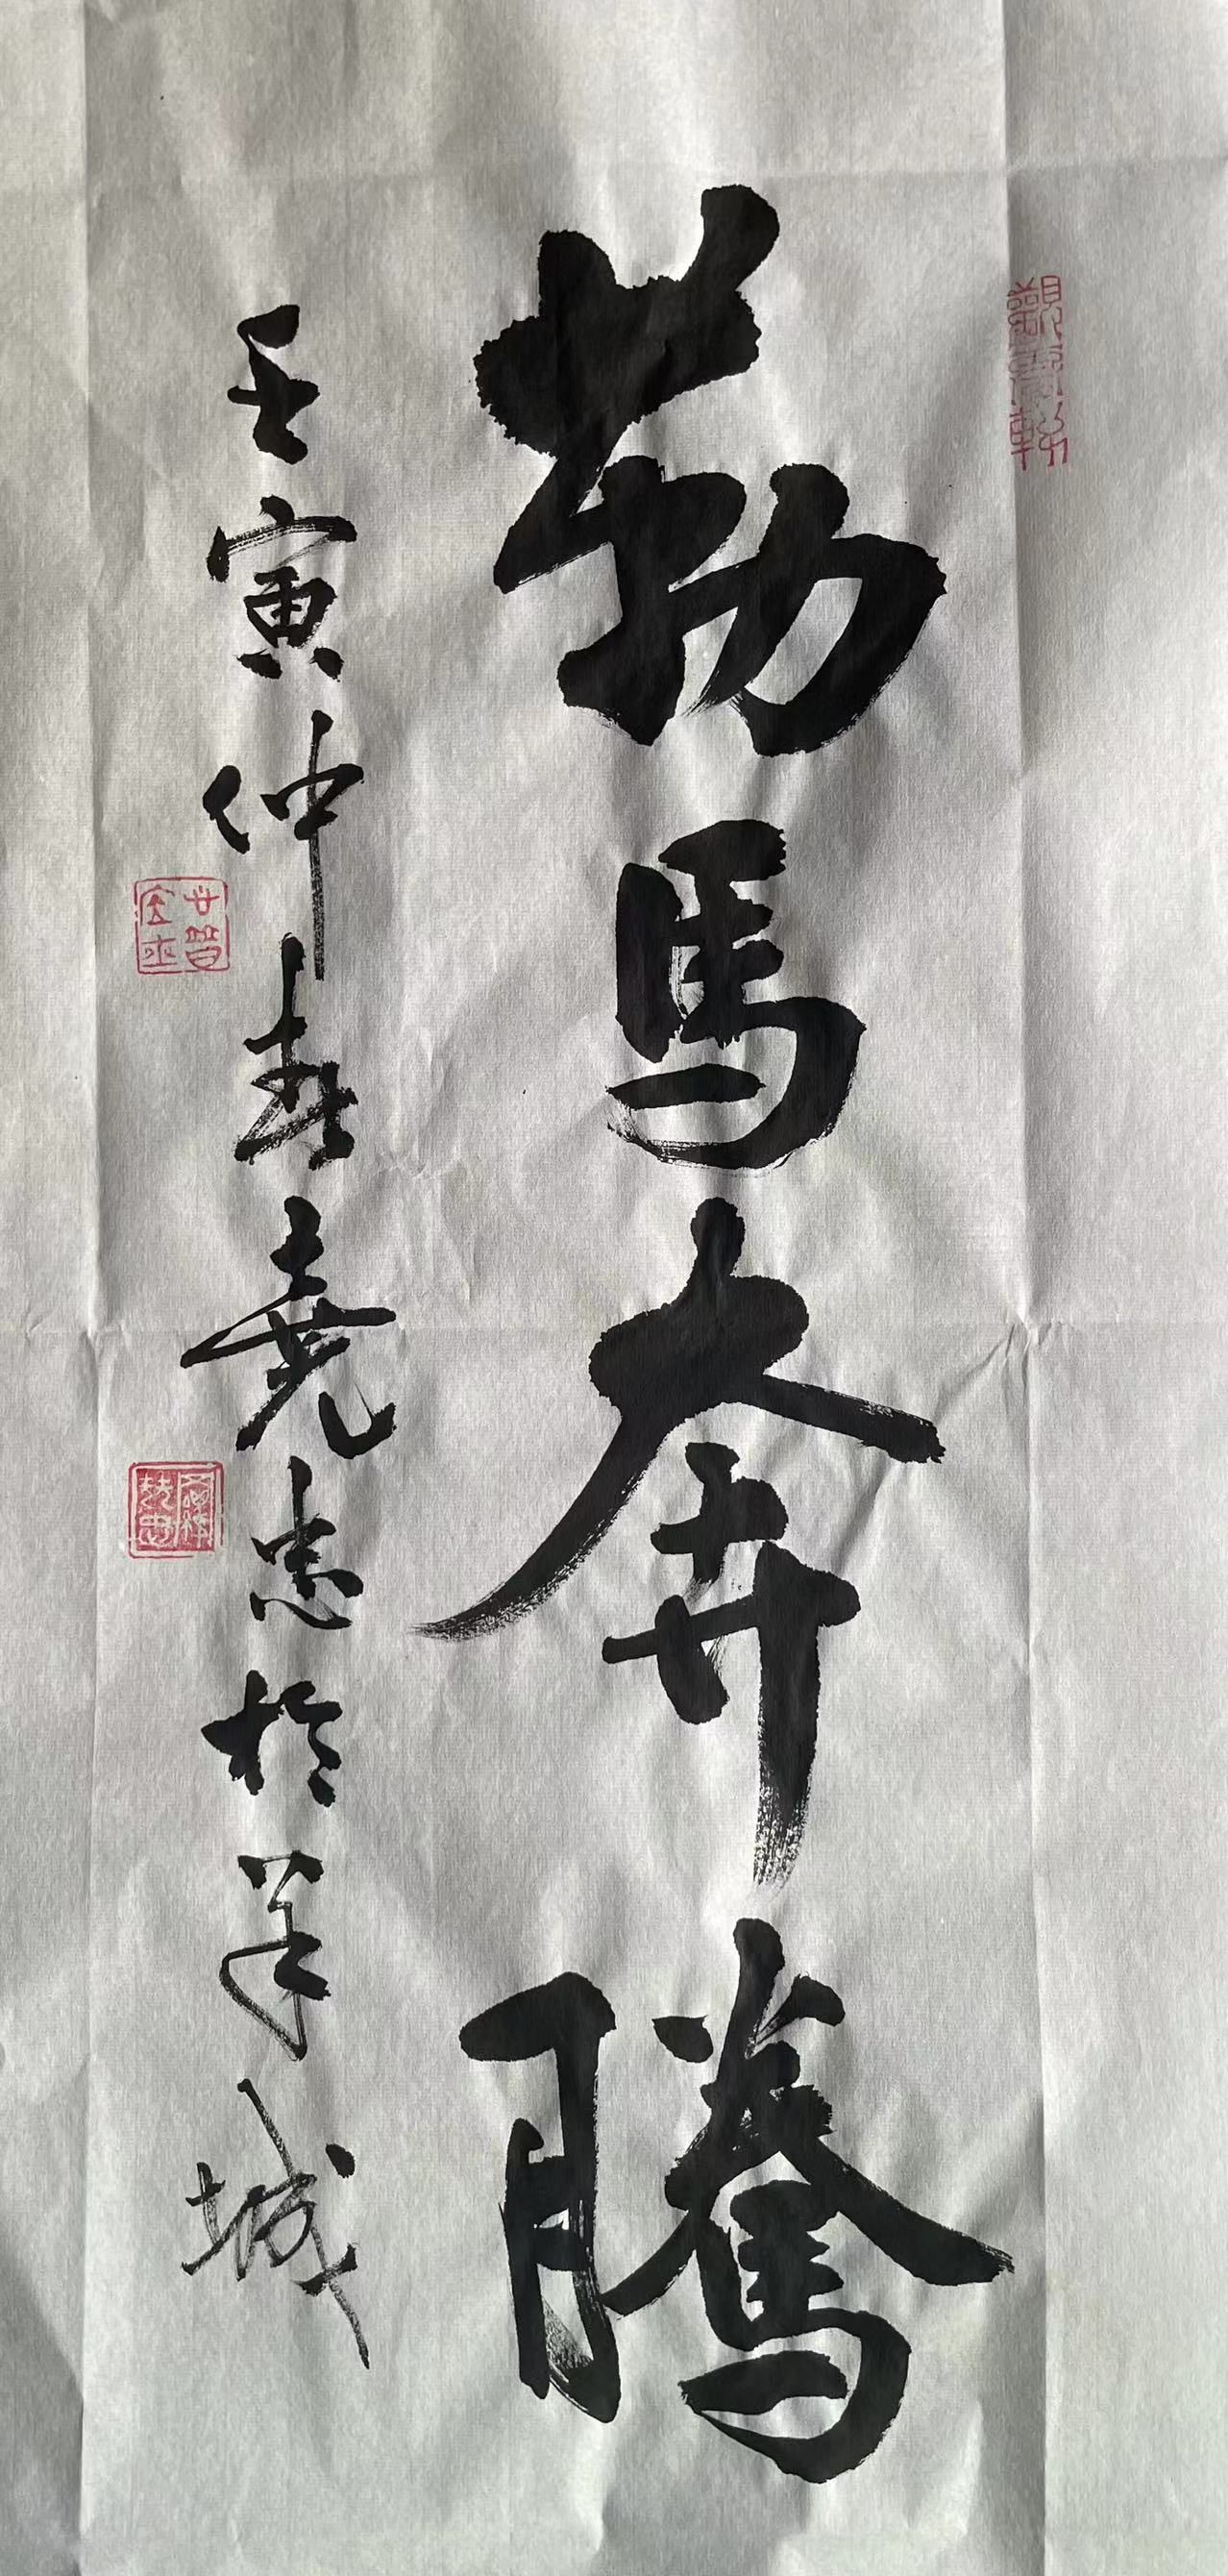 勒馬奔騰
壬寅仲春堯忠於羊城